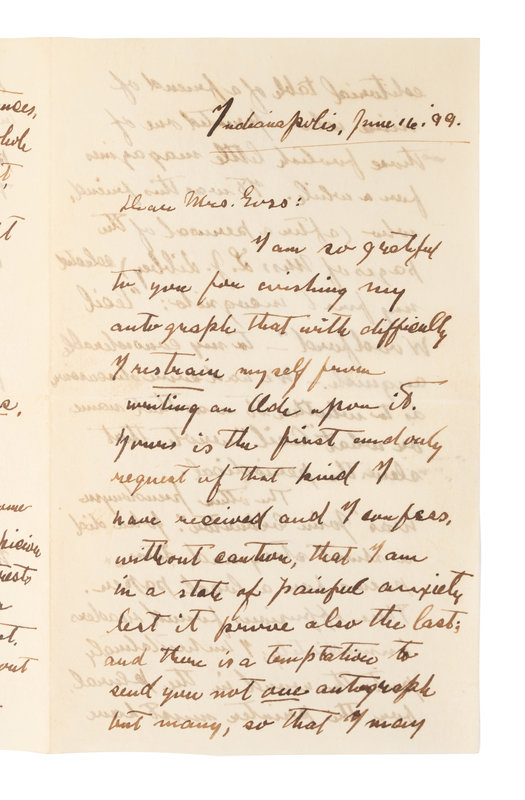 hole
picion
rests
out
Indianapolis, June 16. '99.
Dear Mrs.
I am so grateful
to you for wishing my
autograph that with difficulty
I restrain myself from
writing an Ode upon it.
Yours is the first and only
request of that kind I
have received and I confess,
without caution, that I am
in a state of painful anxiety
lest it prove also the last;
and there is a temptation to
send you not one autograph
but many, so that I may